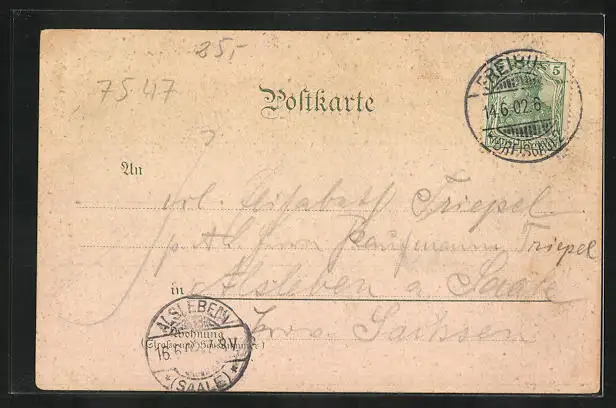 25,-
7547
Postkarte
14.6.02.6
5
An
Frl. Elisabeth Triepel
p. Ad. Herrn Kaufmann Triepel
in Alsleben a. Saale
Prov. Sachsen
ALSLEBEN
Wohnung
(Straße und Hausnummer)
16.6
7-8V
*(SAALE)*